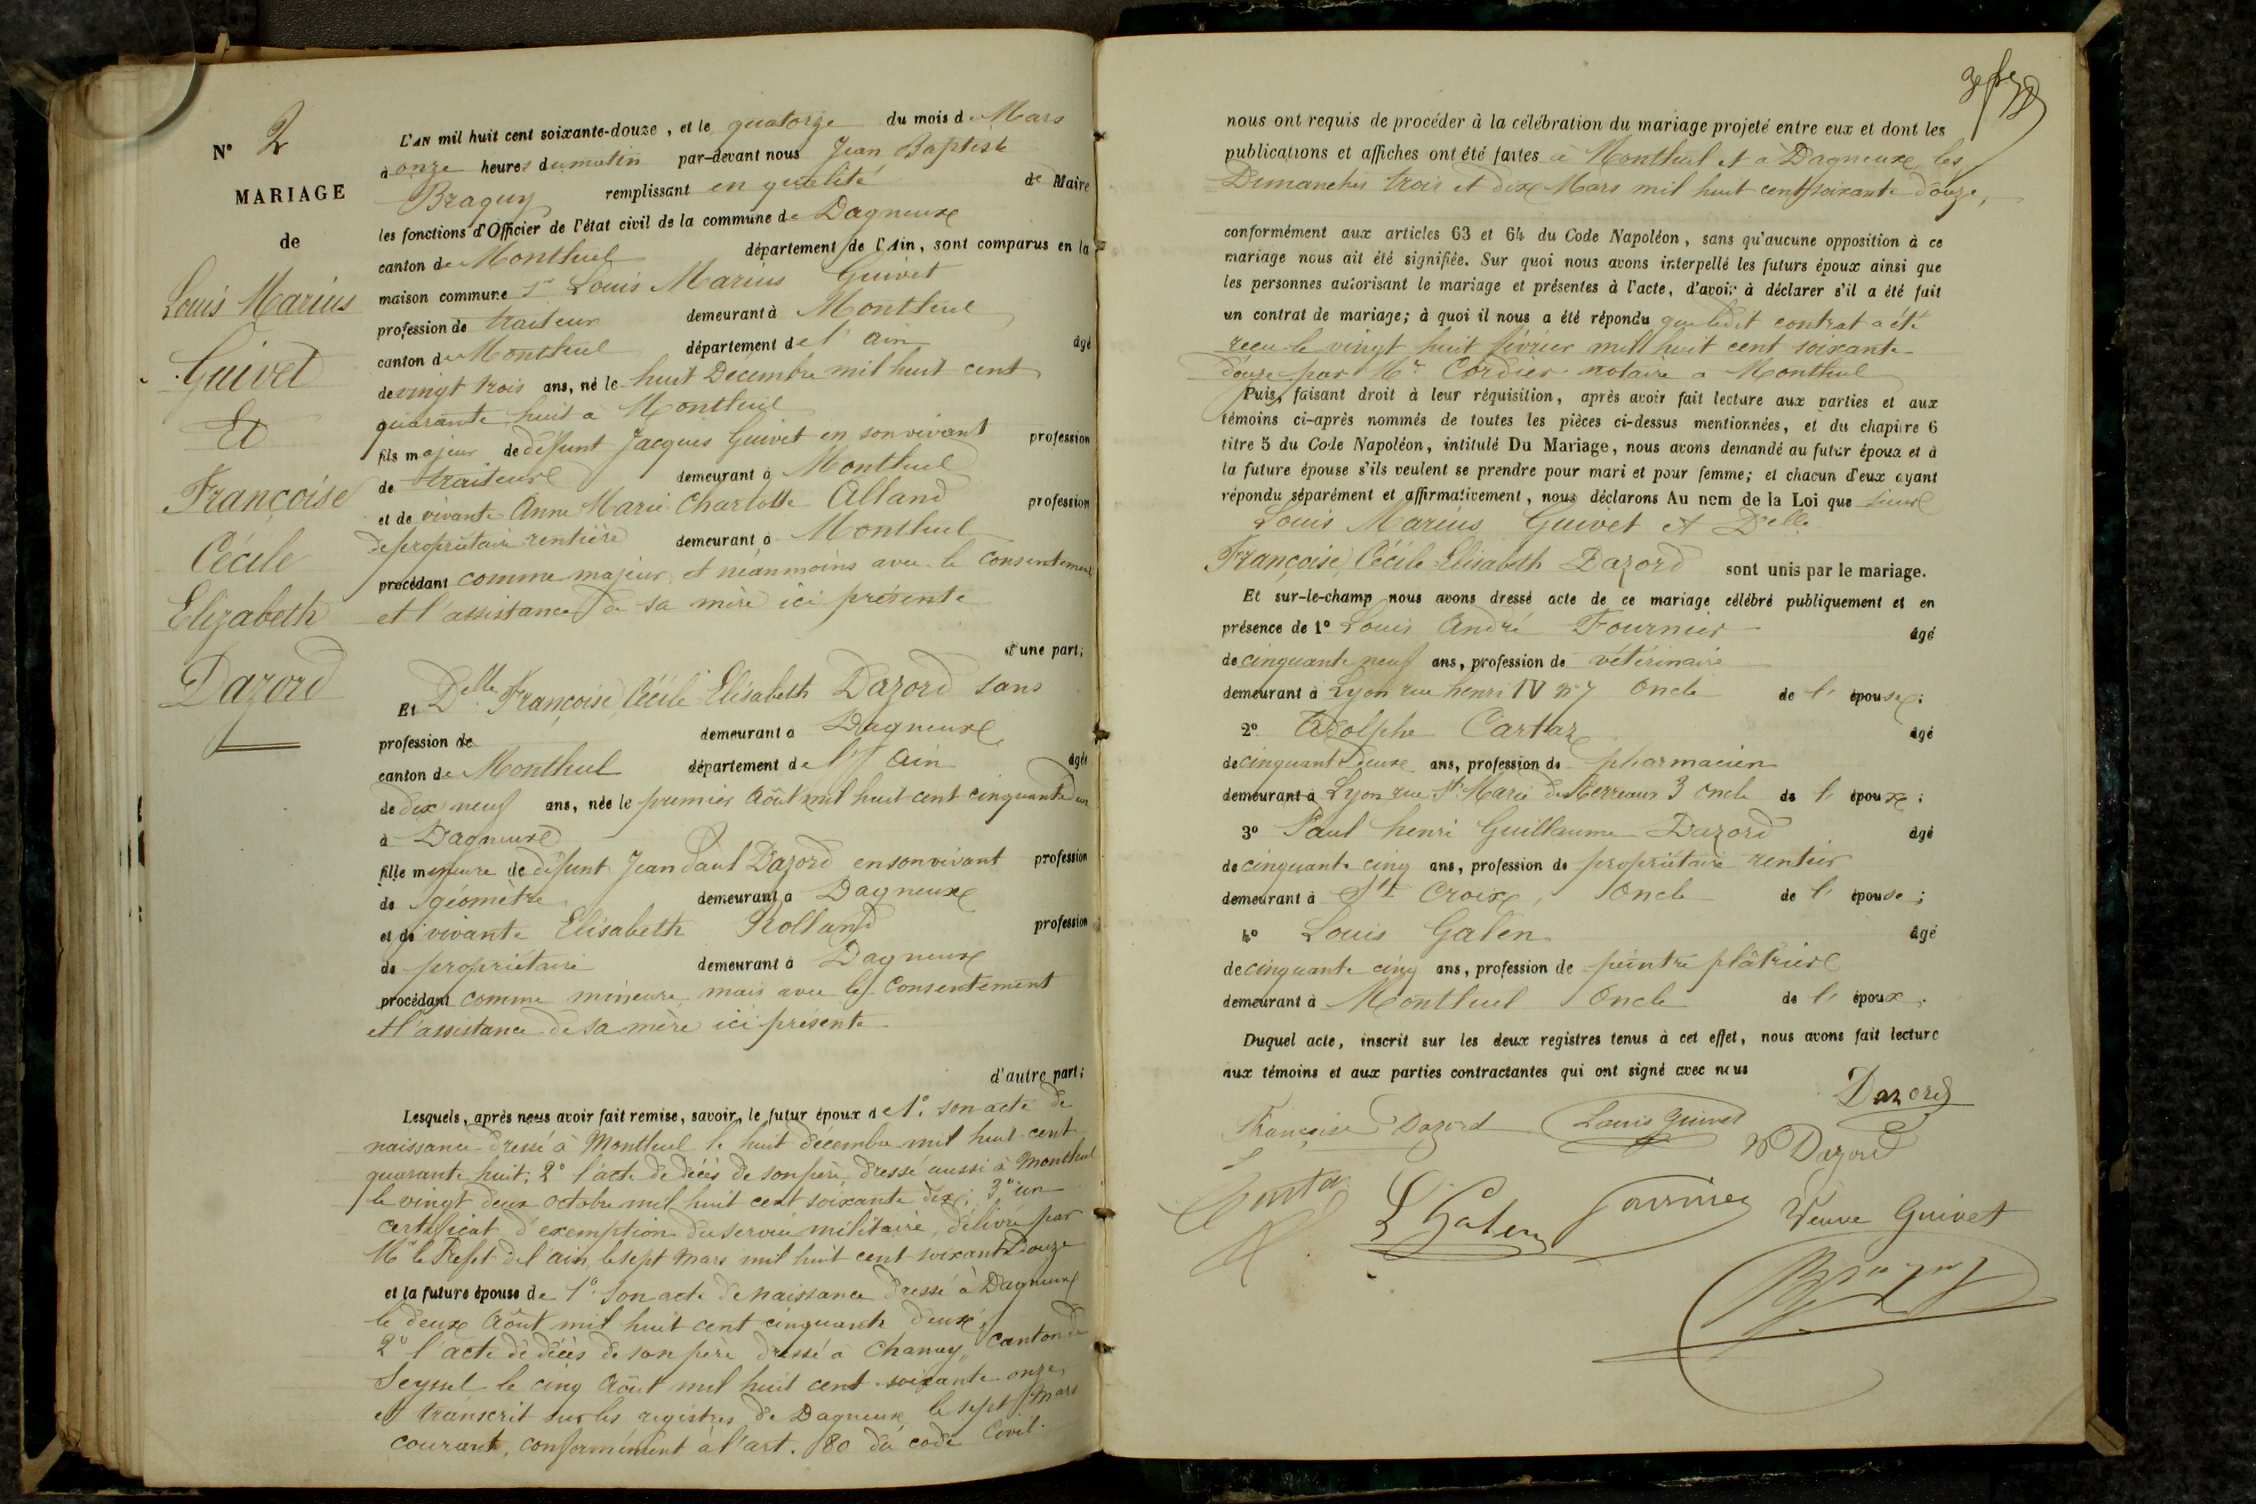 N° 2
MARIAGE
de
Louis Marius
Guivet
Et
Françoise
Cécile
Elizabeth
Dazord
L'AN mil huit cent soixante-douze, et le quatorze du mois de Mars
à onze heures du matin par-devant nous Jean Baptiste
Braguy remplissant en qualité de Maire
les fonctions d'Officier de l'état civil de la commune de Dagneux
canton de Montluel département de l'Ain, sont comparus en la
maison commune Sr Louis Marius Guivet
profession de traiteur demeurant à Montluel
canton de Montluel département de l'ain âgé
de vingt trois ans, né le huit Décembre mil huit cent
quarante huit à Montluel
fils majeur de défunt Jacques Guivet en son vivant profession
de traiteur demeurant à Montluel
et de vivante Anne Marie Charlotte Alland profession
de propriétaire rentière demeurant à Montluel
procédant comme majeur et néanmoins avec le consentement
et l'assistance de sa mère ici présente
d'une part;
Et Delle Françoise Cécile Elisabeth Dazord sans
profession de demeurant à Dagneux
canton de Montluel département de l'Ain âgée
de dix neuf ans, née le premier Août mil huit cent cinquante deux
à Dagneux
fille mineure de défunt Jean Paul Dazord en son vivant profession
de géomètre demeurant à Dagneux
et de vivante Elisabeth Rolland profession
de propriétaire demeurant à Dagneux
procédant comme mineure mais avec le Consentement
et l'assistance de sa mère ici présente
d'autre part;
Lesquels, après nous avoir fait remise, savoir, le futur époux de 1° son acte de
naissance dressé à Montluel le huit décembre mil huit cent
quarante huit; 2° l'acte de décès de son père dressé aussi à Montluel
le vingt deux octobre mil huit cent soixante dix; 3° un
certificat d'exemption du service militaire, délivré par
Mr le Préfet de l'ain, le sept Mars mil huit cent soixante Douze
et la future épouse de 1° son acte de naissance dressé à Dagneux
le deux Août mil huit cent cinquante deux,
2° l'acte de décès de son père dressé à Chanay, canton de
Seyssel le cinq Août mil huit cent soixante onze
et transcrit sur les registres de Dagneux le sept Mars
courant, conformément à l'art. 80 du code Civil.
nous ont requis de procéder à la célébration du mariage projeté entre eux et dont les
publications et affiches ont été faites à Montluel et à Dagneux, les
Dimanches trois et dix Mars mil huit cent soixante douze,
conformément aux articles 63 et 64 du Code Napoléon, sans qu'aucune opposition à ce
mariage nous ait été signifiée. Sur quoi nous avons interpellé les futurs époux ainsi que
les personnes autorisant le mariage et présentes à l'acte, d'avoir à déclarer s'il a été fait
un contrat de mariage; à quoi il nous a été répondu que ledit contrat a été
reçu le vingt huit février mil huit cent soixante
douze par Mr Cordier notaire a Montluel
Puis, faisant droit à leur réquisition, après avoir fait lecture aux parties et aux
témoins ci-après nommés de toutes les pièces ci-dessus mentionnées, et du chapitre 6
titre 5 du Code Napoléon, intitulé Du Mariage, nous avons demandé au futur époux et à
la future épouse s'ils veulent se prendre pour mari et pour femme; et chacun d'eux ayant
répondu séparément et affirmativement, nous déclarons Au nom de la Loi que sieur
Louis Marius Guivet et Delle
Françoise, Cécile Elisabeth Dazord sont unis par le mariage.
Et sur-le-champ nous avons dressé acte de ce mariage célébré publiquement et en
présence de 1° Louis André Fournier âgé
de cinquante neuf ans, profession de vétérinaire
demeurant à Lyon rue henri IV n° 7 Oncle de l'épouse;
2° Adolphe Cartaz âgé
de cinquante deux ans, profession de pharmacien
demeurant à Lyon rue Ste Marie des Terreaux 3 Oncle de l'époux;
3° Paul henri Guillaume Dazord âgé
de cinquante cinq ans, profession de propriétaire rentier
demeurant à Ste Croix, Oncle de l'épouse;
4° Louis Galen âgé
de cinquante cinq ans, profession de peintre plâtrier
demeurant à Montluel Oncle de l'époux.
Duquel acte, inscrit sur les deux registres tenus à cet effet, nous avons fait lecture
aux témoins et aux parties contractantes qui ont signé avec nous
Dazord
Françoise Dazord Louis Guivet
Ve Dazord
L Galen Fournier Veuve Guivet
Braguy